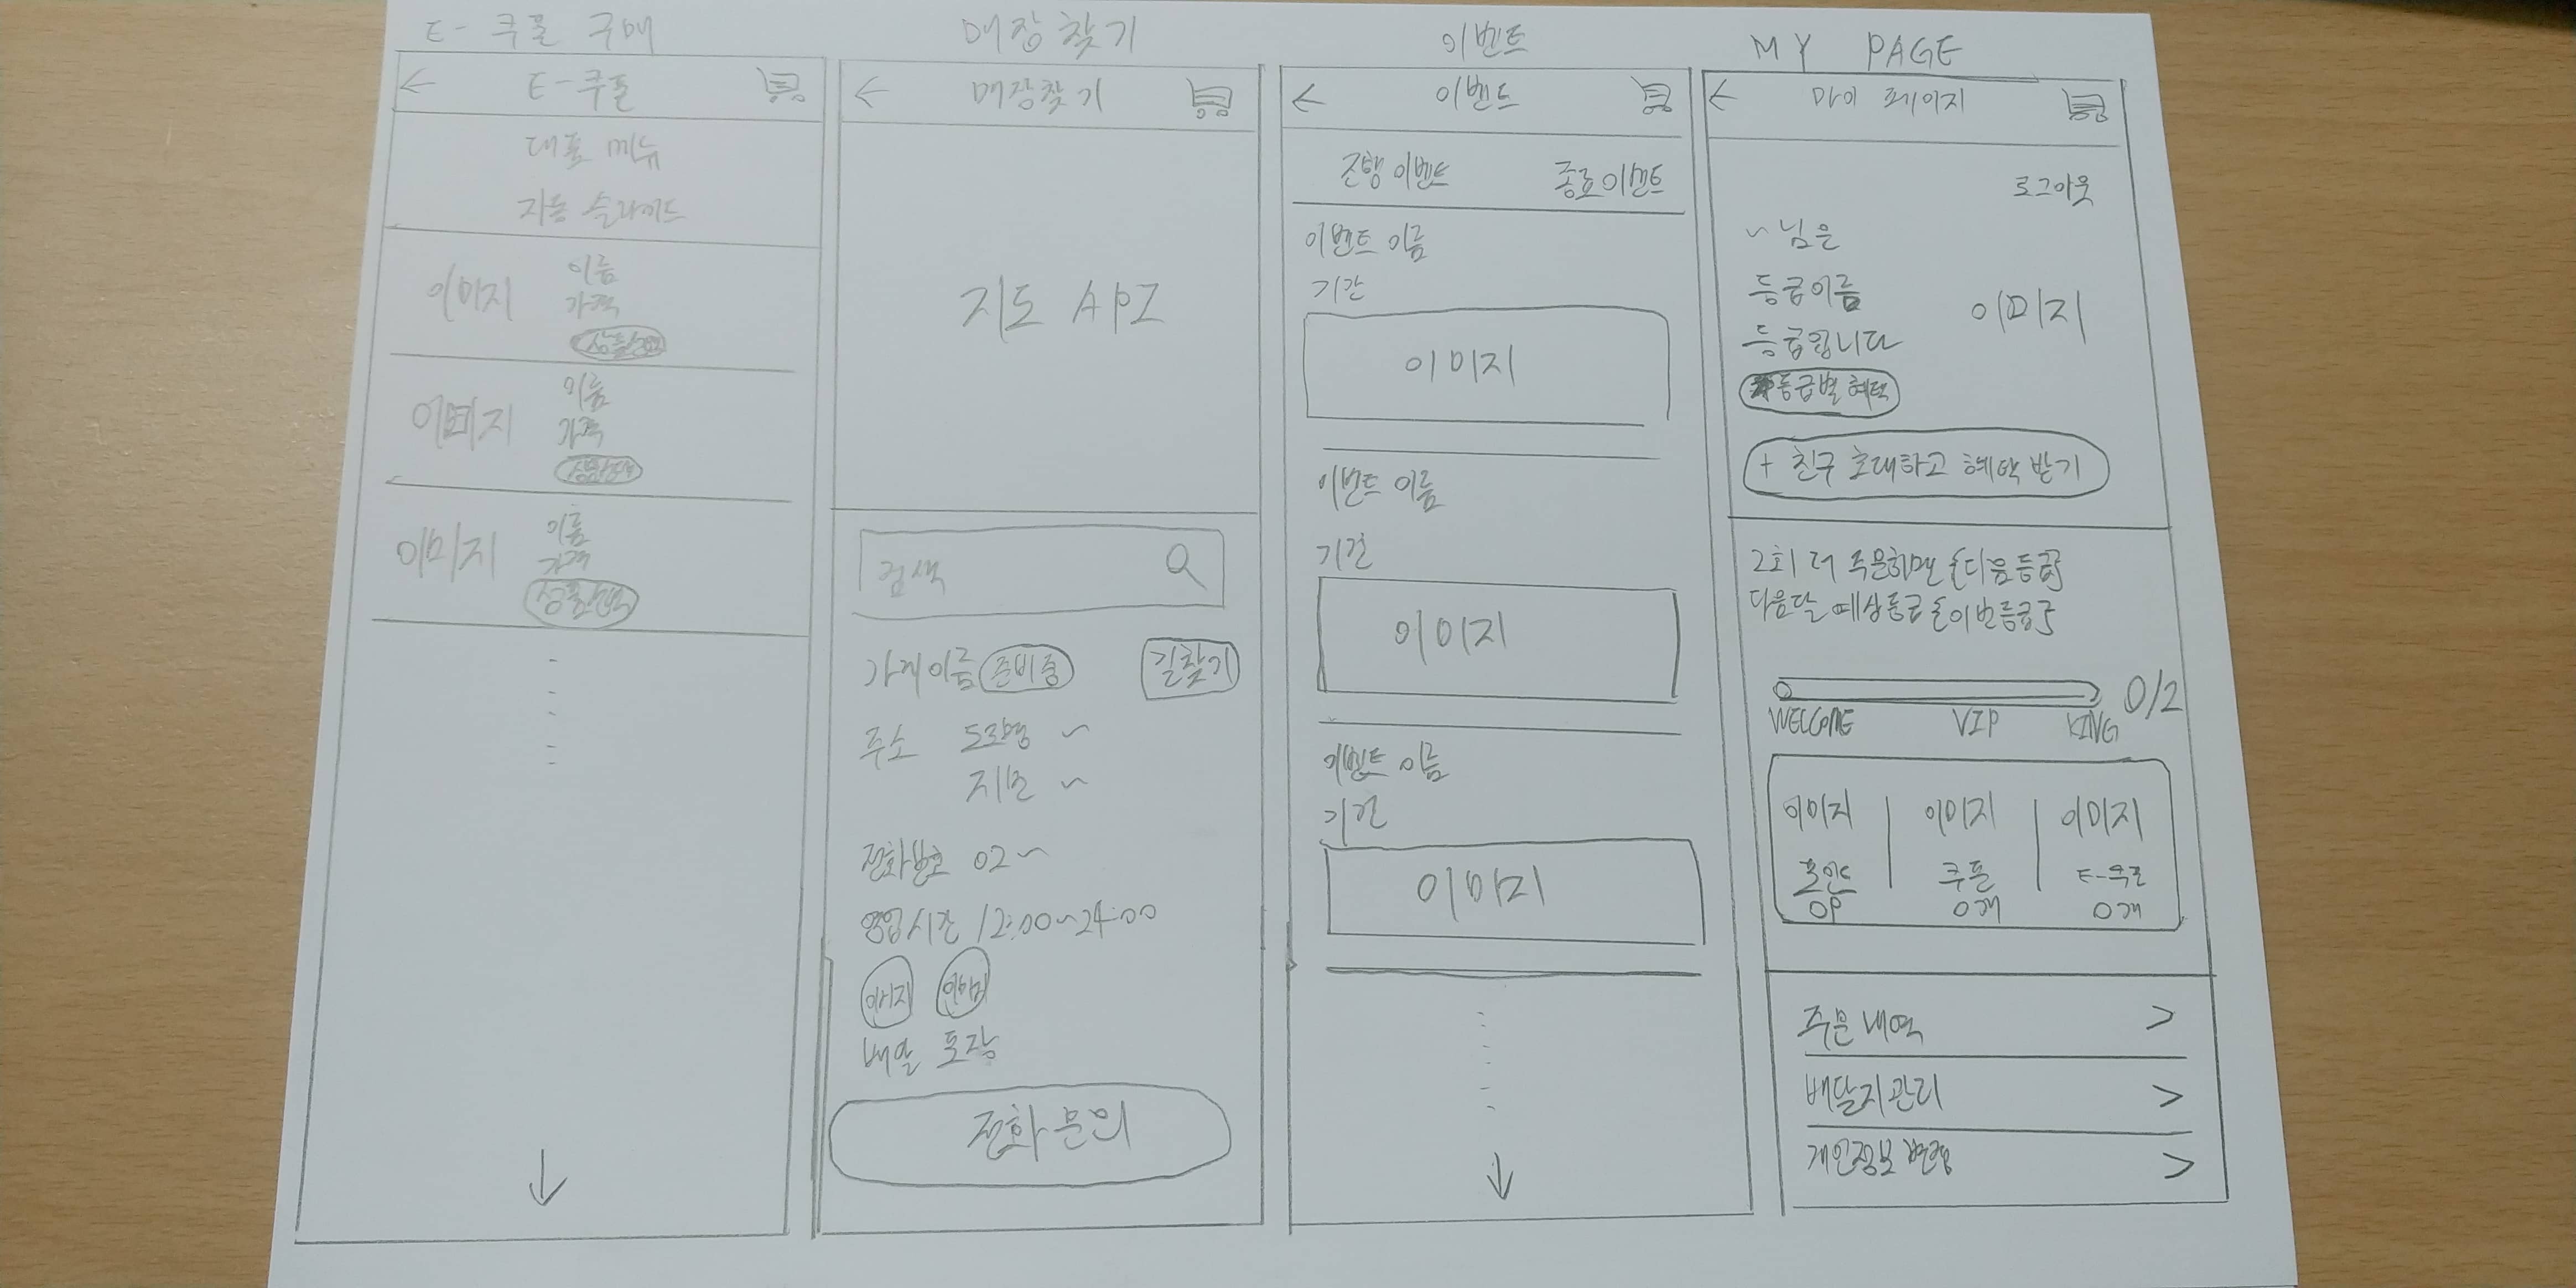 E- 쿠폰 구매
E-쿠폰
대표 메뉴
자동 슬라이드
이미지
이름
가격
이미지
이름
가격
이미지
이름
가격
상품선택
매장찾기
매장찾기
지도 API
검색
가게이름 준비중 길찾기
주소 도로명 ~
지번 ~
전화번호 02~
영업시간 12:00~24:00
이미지 이미지
배달 포장
전화문의
이벤트
이벤트
진행이벤트 종료이벤트
이벤트 이름
기간
이미지
이벤트 이름
기간
이미지
이벤트 이름
기간
이미지
MY PAGE
마이 페이지
로그아웃
~님은
등급이름
등급입니다
이미지
등급별 혜택
+ 친구 초대하고 혜택 받기
2회 더 주문하면 {다음등급}
다음달 예상등급 {이번등급}
0/2
WELCOME VIP KING
이미지 이미지 이미지
포인트 쿠폰 E-쿠폰
0P 0개 0개
주문내역 >
배달지관리 >
개인정보 변경 >